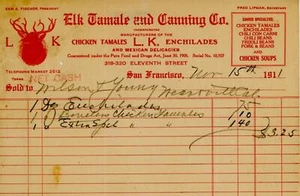 ERIC A. FISCHER, PRESIDENT
FRED LIPMAN, SECRETARY
Elk Tamale and Canning Co.
INCORPORATED
MANUFACTURERS OF THE
L K
CHICKEN TAMALES L.K. ENCHILADES
AND MEXICAN DELICACIES
Guaranteed under the Pure Food and Drugs Act, June 30, 1906. Serial No.
319-320 ELEVENTH STREET
CANNED SPECIALTIES
CHICKEN TAMALES
ENCHILADES
CHILI CON CARNE
CHILE BEANS
FRIJOLE BEANS
PORK & BEANS
AND
CHICKEN SOUPS
TELEPHONE MARKET 2512
NET CASH
San Francisco, Nov 15th 1911
Sold to Wilson & Young
1 Enchilades 75
1 Chicken Tamales 1 10
1 Extra Spcl " 1 40
$3.25